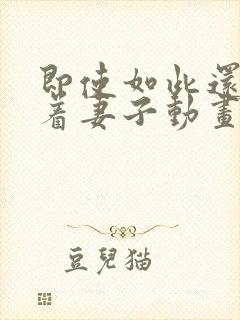 即使如此還
着妻子動畫
豆兒猫